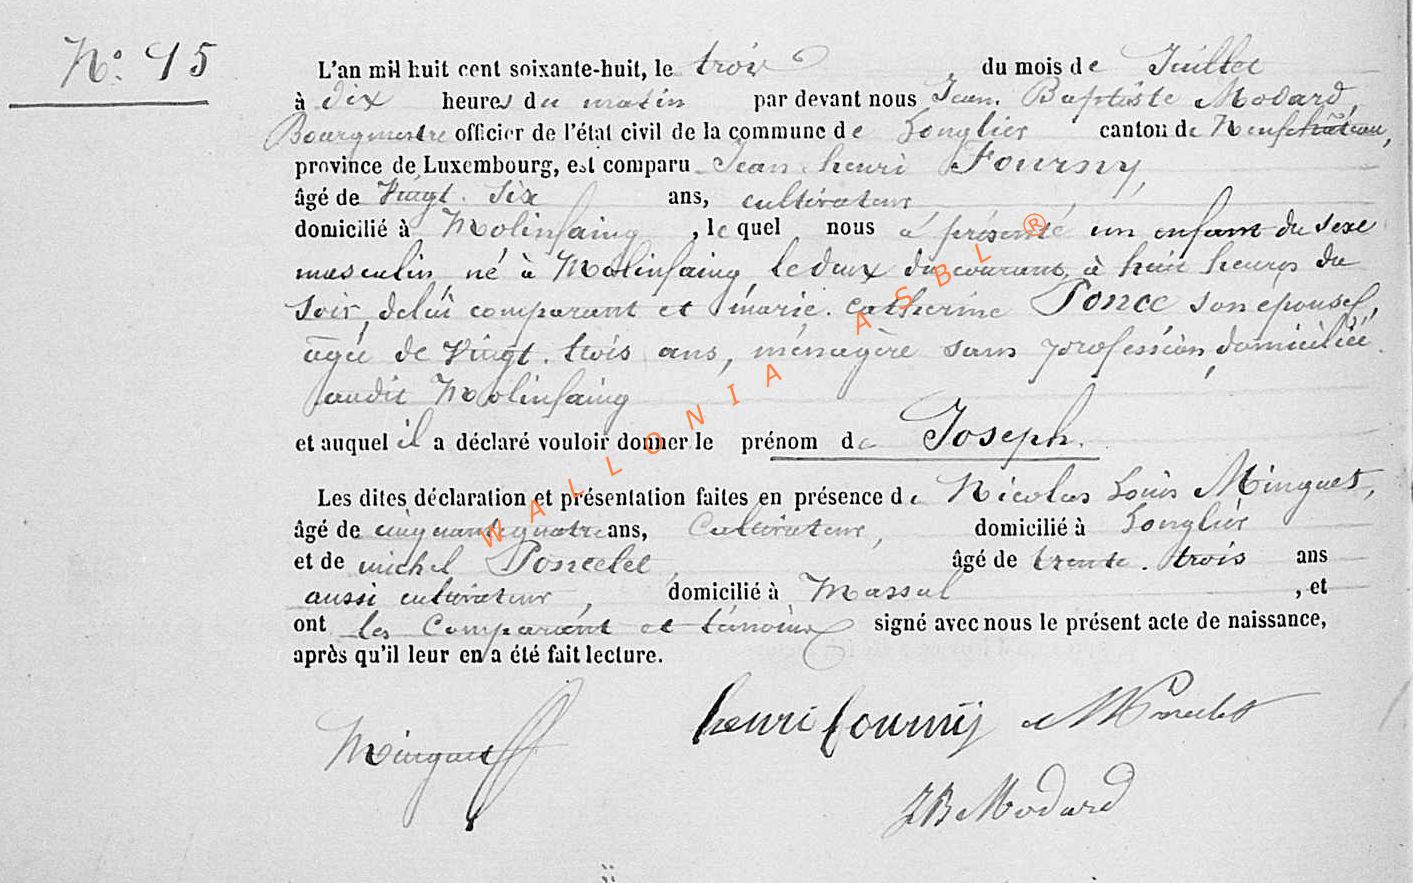 N° 45
L'an mil huit cent soixante-huit, le trois du mois de Juillet
à dix heures du matin par devant nous Jean Baptiste Modard,
Bourgmestre officier de l'état civil de la commune de Longlier canton de Neufchâteau,
province de Luxembourg, est comparu Jean henri Fourny,
âgé de Vingt six ans, cultivateur,
domicilié à Molinfaing, lequel nous a présenté un enfant du sexe
masculin né à Molinfaing, le deux du courant, à huit heures du
soir, de lui comparant et marie Catherine Ponce son épouse,
agée de Vingt trois ans, ménagère sans profession, domiciliée
audit Molinfaing
et auquel il a déclaré vouloir donner le prénom de Joseph.
Les dites déclaration et présentation faites en présence de Nicolas Louis Minguet,
âgé de cinquante quatre ans, Cultivateur, domicilié à Longlier
et de michel Poncelet âgé de trente trois ans
aussi cultivateur, domicilié à Massul, et
ont les Comparant et témoins signé avec nous le présent acte de naissance,
après qu'il leur en a été fait lecture.
Minguet henri fourny M Poncelet
JB Modard
WALLONIA ASBL ®